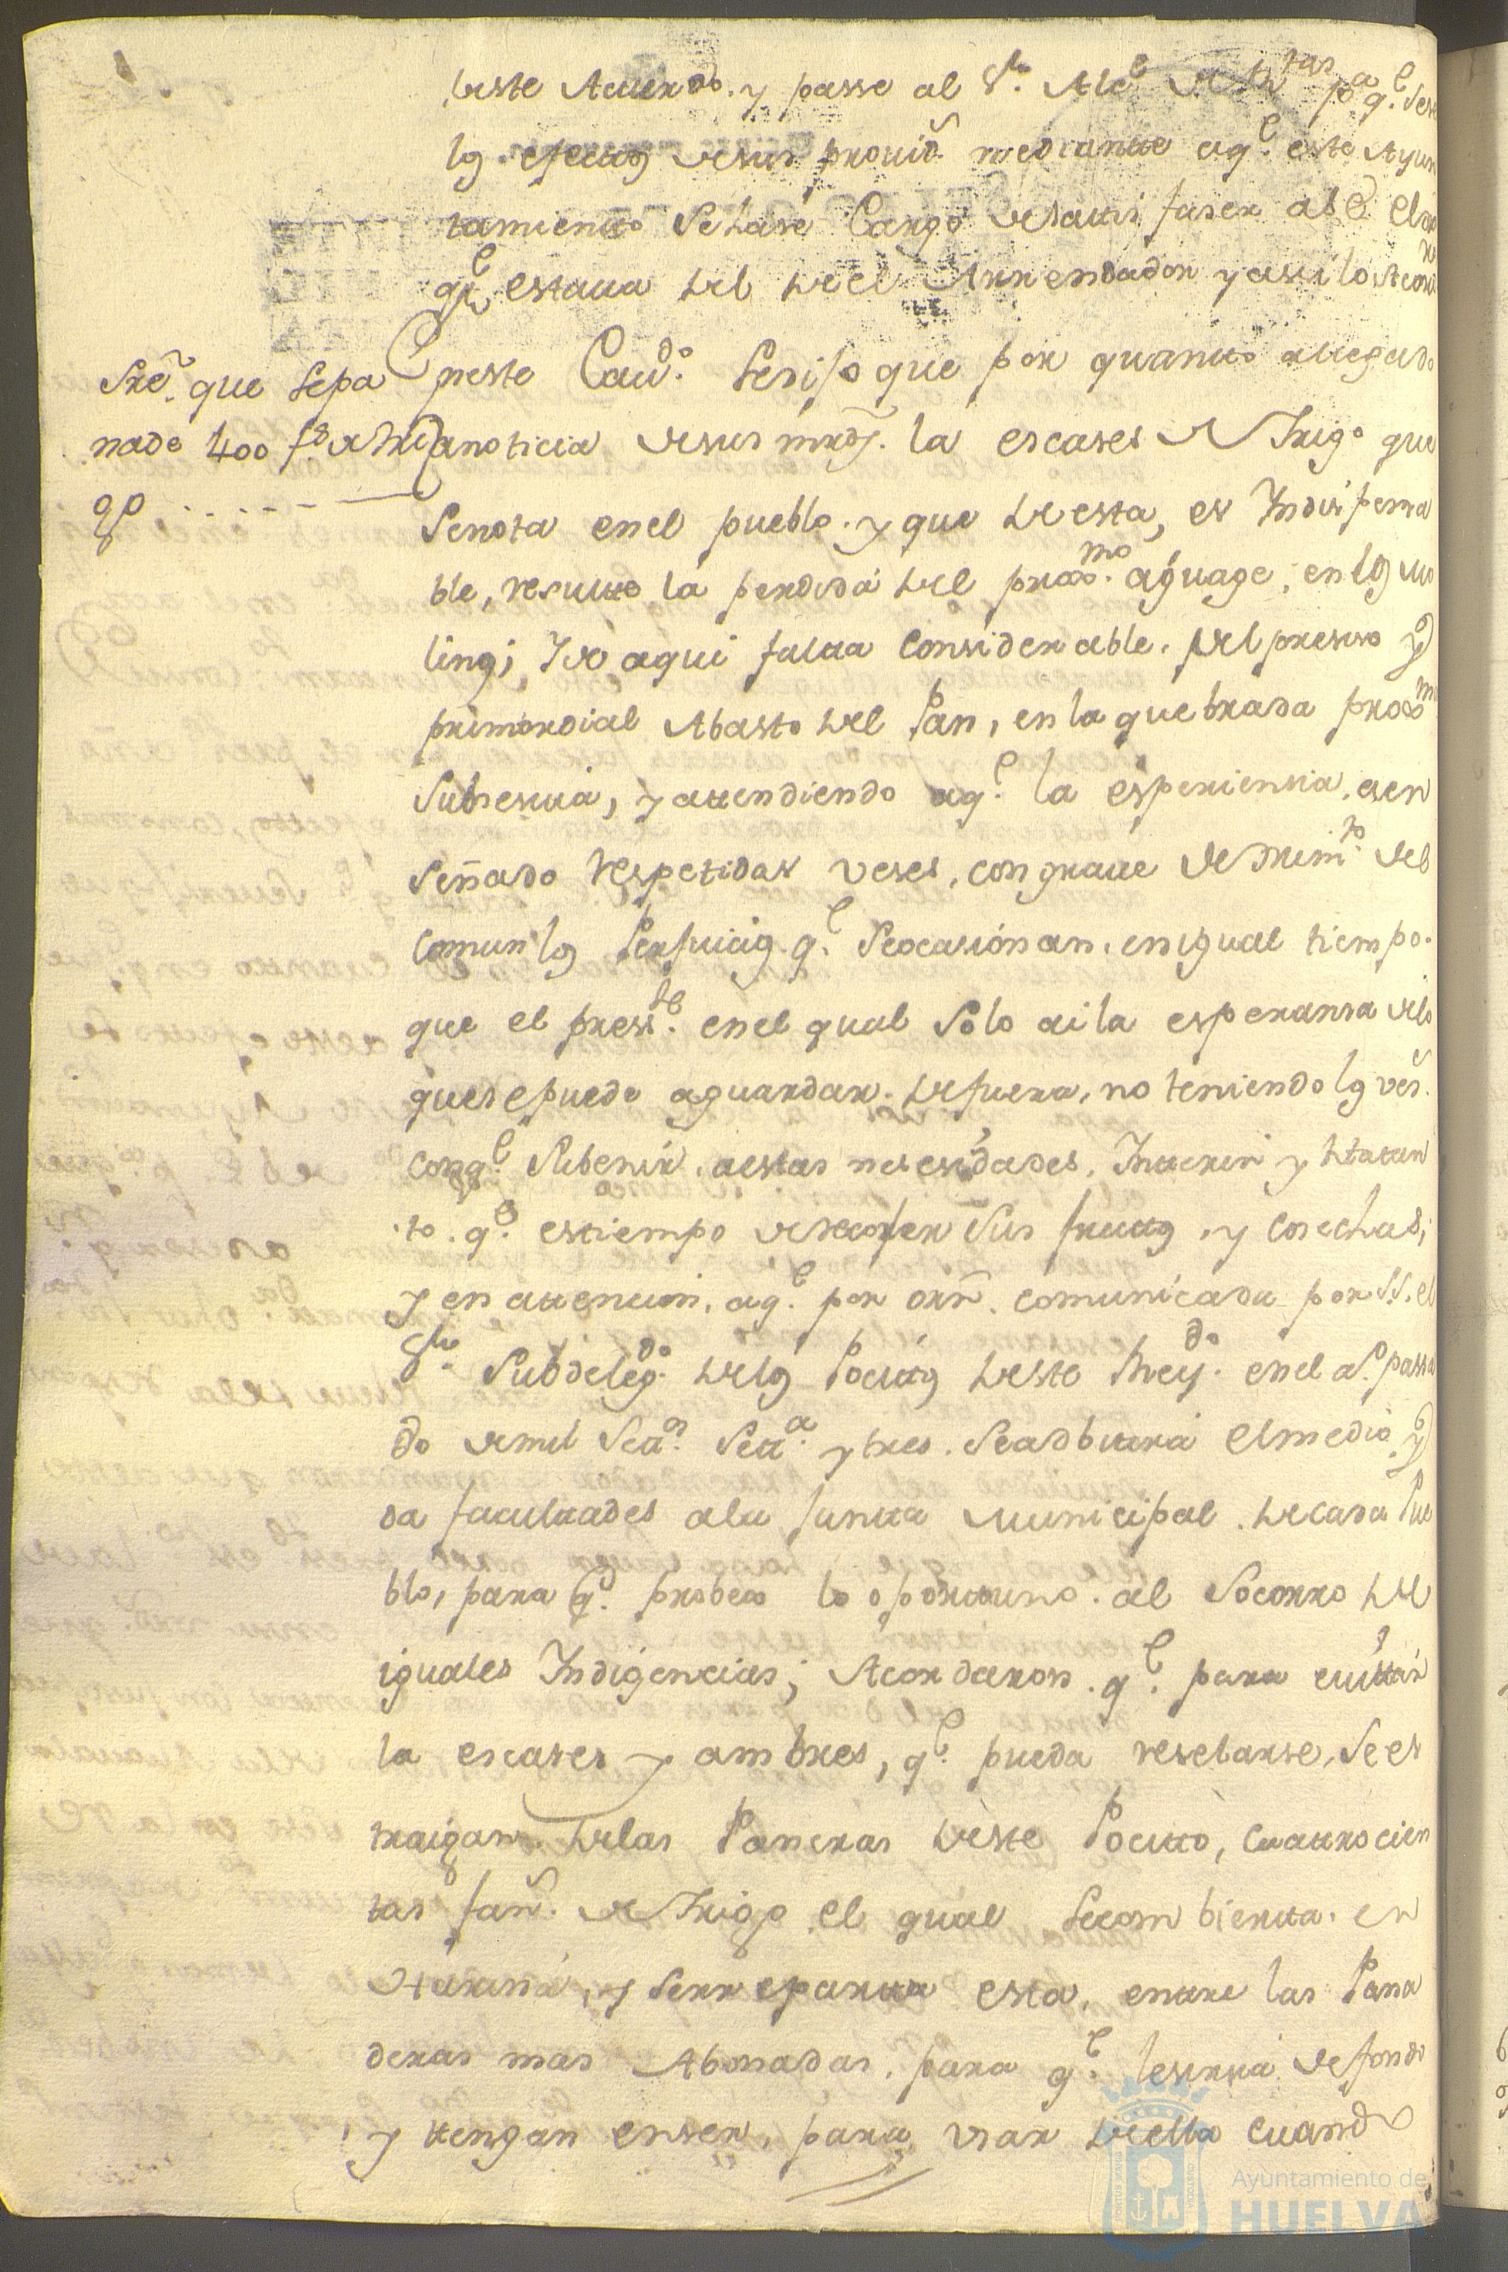 deste Acuerdo. y passe al Sr. Alce. de p.a q.e
los efectos de sus provid.s mediante a q.e este Ayun
tamiento se hase Cargo de satisfaser
q.e estava del de el Arrendador y asi lo Acor
En este Cavdo. se dijo que por quanto a llegado
Sre. que se pa
nade 400 fs de tri
go
a noticia de sus mrds. la escases de Trigo que
se nota en el pueblo. y que de esta, es Indispensa
ble, resulte la perdida del proxmo. aguage, en los mo
linos; Y de aqui falta Considerable. del presiso y
primordial Abasto del Pan, en la quebrada proxma
Subsecua, y attendiendo a q.e la esperiensia, a en
señado Respetidas veses, con grave detrimto. del
Comun los Perjuicios q.e se ocasionan. en igual tiempo.
que el presste. en el qual Solo ai la esperansa de lo
que se puede aguardar. de fuera, no teniendo los vesos.
con q.e Subenir, a estas nesesidades, Interin y
to. q.e es tiempo de Recojer Sus frutos, y Cosechas;
y en attension, a q.e por orn. comunicada por S.S. el
Sr. Subdelegdo. de los Positos deste Reydo. en el ao. passa
do de mil Setos. Seta. y tres. Se adbitara el medio, y
da facultades a la Junta Municipal. de cada Pue
blo, para q.e probea lo oportuno. al Socorro de
iguales Indigencias; Acordaron. q.e para evitar
la escases y ambres, q.e pueda reselarse, Se es
traigan. de las Paneras deste Posito, Cuatrocien
tas fans. de Trigo el qual Se combierta. en
Harina, y Se rreparta esta, entre las Pana
deras mas Abonadas, para q.e le sirva de fondo
y tengan enser, para usar de ella cuando
Ayuntamiento de
HUELVA